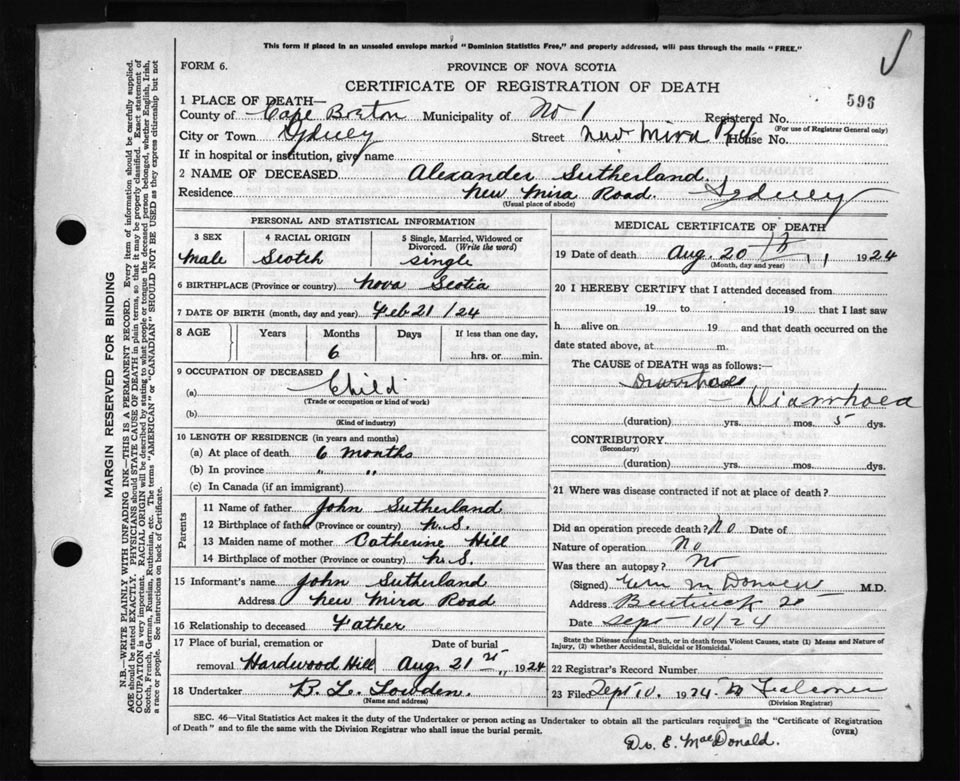 This form if placed in an unsealed envelope marked "Dominion Statistics Free," and properly addressed, will pass through the mails "FREE."
FORM 6.
PROVINCE OF NOVA SCOTIA
CERTIFICATE OF REGISTRATION OF DEATH
596
1 PLACE OF DEATH—
County of Cape Breton Municipality of No 1 Registered No.
(For use of Registrar General only)
City or Town Sydney Street New Mira Rd House No.
If in hospital or institution, give name
2 NAME OF DECEASED Alexander Sutherland
Residence New Mira Road. Sydney
(Usual place of abode)
PERSONAL AND STATISTICAL INFORMATION
3 SEX 4 RACIAL ORIGIN 5 Single, Married, Widowed or Divorced. (Write the word)
male Scotch single
6 BIRTHPLACE (Province or country) Nova Scotia
7 DATE OF BIRTH (month, day and year) Feb 21/24
8 AGE Years Months Days If less than one day,
6 hrs. or min.
9 OCCUPATION OF DECEASED
(a) Child
(Trade or occupation or kind of work)
(b)
(Kind of industry)
10 LENGTH OF RESIDENCE (in years and months)
(a) At place of death 6 months
(b) In province " "
(c) In Canada (if an immigrant)
Parents
11 Name of father John Sutherland
12 Birthplace of father (Province or country) N.S.
13 Maiden name of mother Catherine Hill
14 Birthplace of mother (Province or country) N.S.
15 Informant's name John Sutherland
Address New Mira Road
16 Relationship to deceased Father
17 Place of burial, cremation or removal Hardwood Hill Date of burial Aug. 21st, 1924
18 Undertaker B. L. Lowden.
(Name and address)
MEDICAL CERTIFICATE OF DEATH
19 Date of death Aug. 20th 1924
(Month, day and year)
20 I HEREBY CERTIFY that I attended deceased from
19 to 19 that I last saw
h alive on 19 and that death occurred on
date stated above, at m.
The CAUSE OF DEATH was as follows:
Diarrhoea
(duration) yrs. mos. 5 dys.
CONTRIBUTORY
(Secondary)
(duration) yrs. mos. dys.
21 Where was disease contracted if not at place of death?
Did an operation precede death? No Date of
Nature of operation No
Was there an autopsy? No
(Signed) M.D.
Address Bentinck
Date Sept 10/24
State the Disease causing Death, or in death from Violent Causes, state (1) Means and Nature of
Injury, (2) whether Accidental, Suicidal or Homicidal.
22 Registrar's Record Number
23 Filed Sept 10, 1924 Falconer
(Division Registrar)
SEC. 46—Vital Statistics Act makes it the duty of the Undertaker or person acting as Undertaker to obtain all the particulars required in the "Certificate of Registration
of Death" and to file the same with the Division Registrar who shall issue the burial permit.
(OVER)
Dr. E. MacDonald.
MARGIN RESERVED FOR BINDING
N.B.—WRITE PLAINLY WITH UNFADING INK—THIS IS A PERMANENT RECORD. Every item of information should be carefully supplied.
AGE should be stated EXACTLY. PHYSICIANS should STATE CAUSE OF DEATH in plain terms, so that it may be properly classified. Exact statement of
OCCUPATION is very important. RACIAL ORIGIN will be described by stating to what people or tongue the deceased person belonged, whether English, Irish,
Scotch, French, German, Russian, Ruthenian, etc. The terms "AMERICAN" or "CANADIAN" SHOULD NOT BE USED as they express citizenship but not
a race or people. See instructions on back of Certificate.